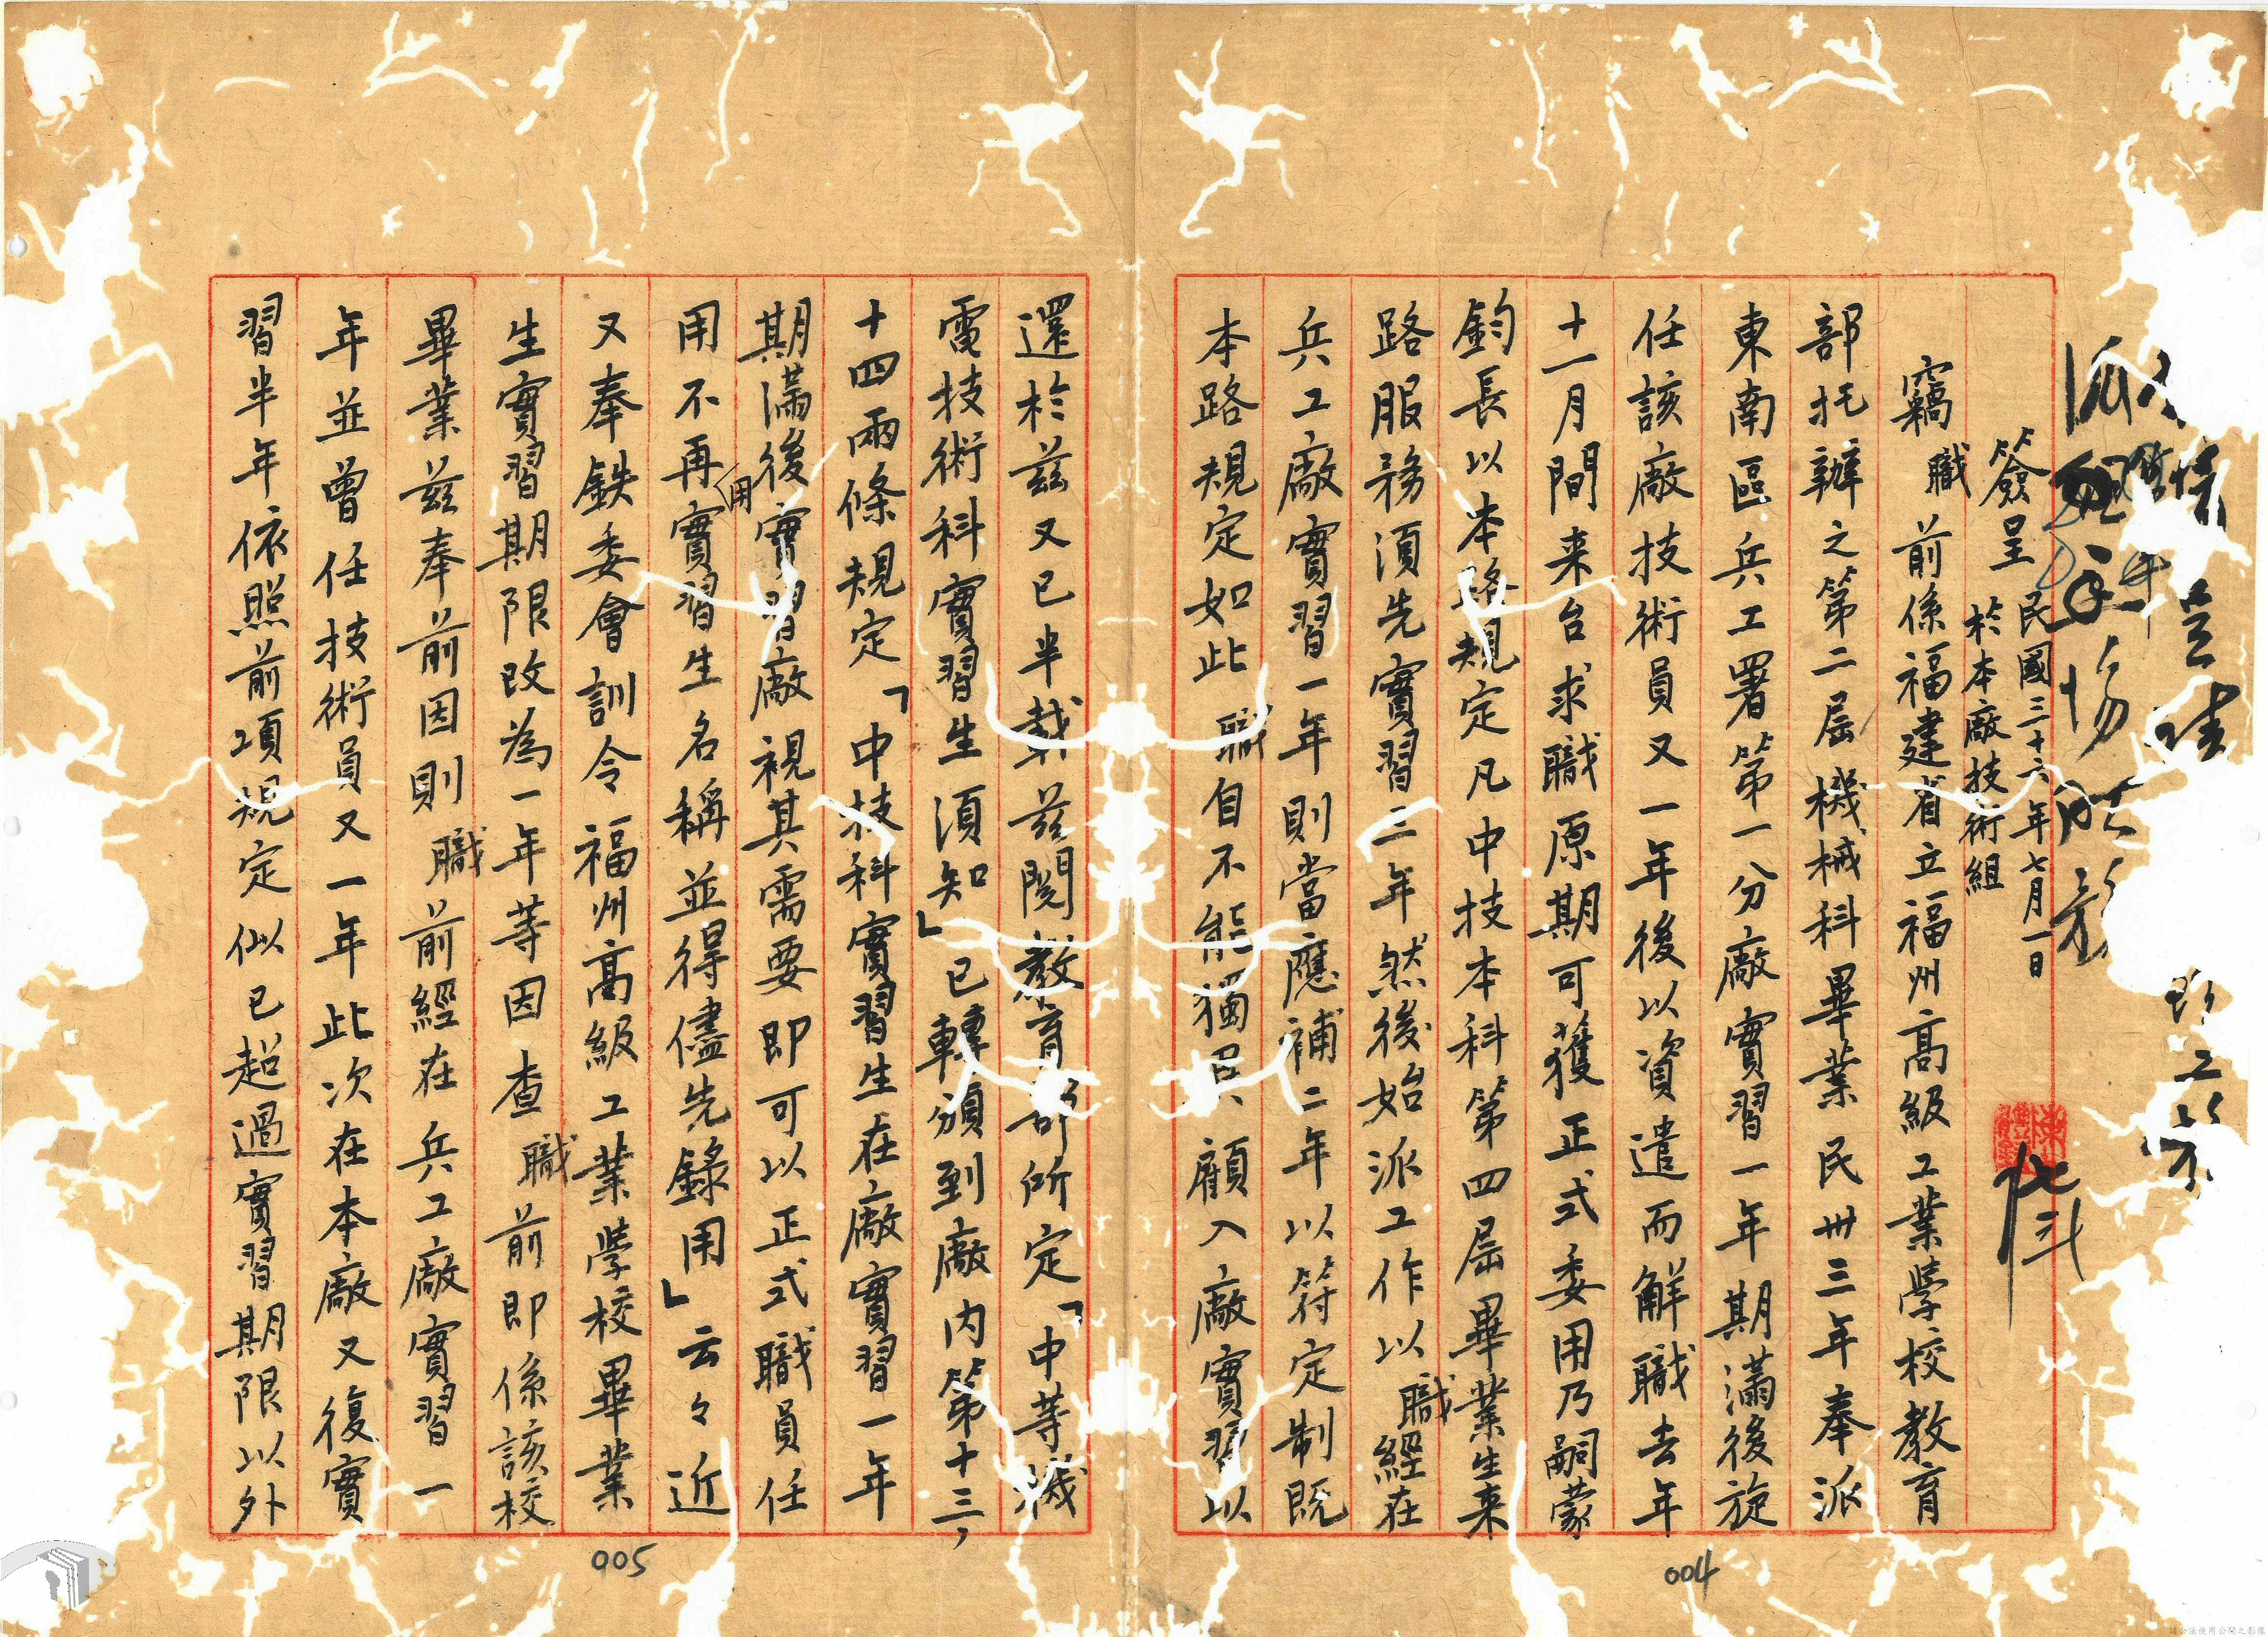 簽呈 民國三十六年七月一日
於本廠技術組
竊職前係福建省立福州高級工業學校教育
部托辦之第二屆機械科畢業民卅三年奉派
東南區兵工署第一分廠實習一年期滿後旋
任該廠技術員又一年後以資遣而解職去年
十一月間来台求職原期可獲正式委用乃嗣蒙
鈞長以本路規定凡中技本科第四屆畢業生来
路服務須先實習三年然後始派工作以職經在
兵工廠實習一年則當應補二年以符定制既
本路規定如此職自不能獨異顧入廠實習以
還於兹又已半載兹閱教育部所定「中等機
電技術科實習生須知」已轉頒到廠內第十三,
十四兩條規定「中技科實習生在廠實習一年
期滿後實習廠視其需要即可以正式職員任
用不再用實習生名稱並得儘先錄用」云々近
又奉鉄委會訓令福州高級工業學校畢業
生實習期限改為一年等因查職前即係該校
畢業兹奉前因則職前經在兵工廠實習一
年並曾任技術員又一年此次在本廠又復實
習半年依照前項規定似已超過實習期限以外
004
005